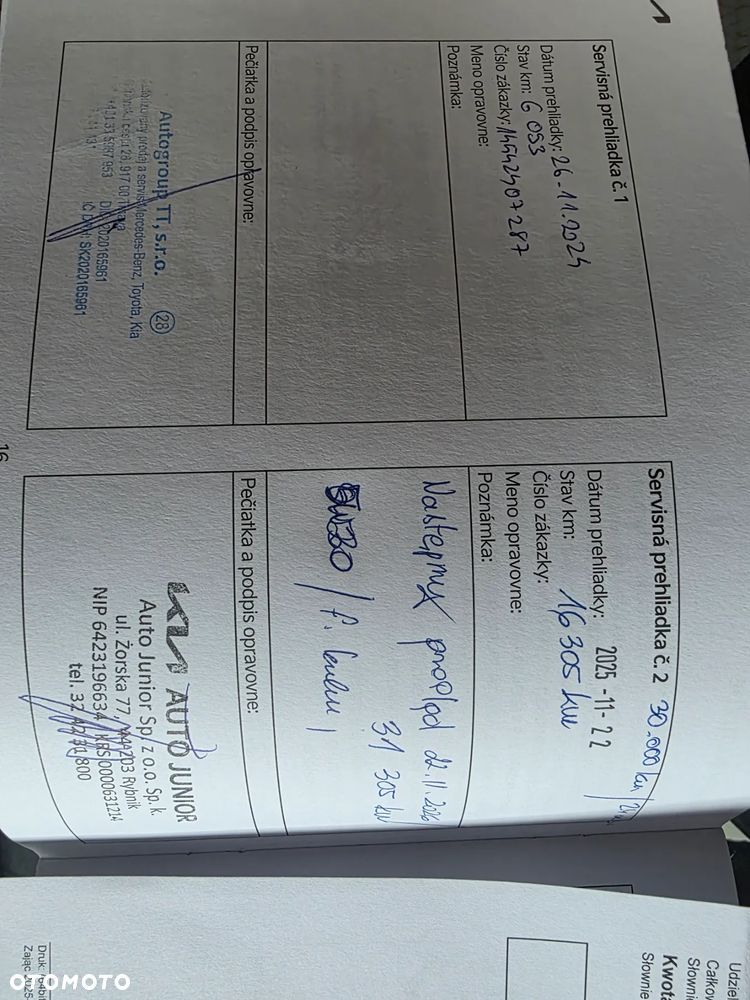 Servisná prehliadka č. 1
Dátum prehliadky: 26-11.2024
Stav km: 6 053
Číslo zákazky: 14542407287
Meno opravovne:
Poznámka:
Pečiatka a podpis opravovne:
Autogroup TT, s.r.o. 28
predaj a servis Mercedes-Benz, Toyota, Kia
28, 917 00
953
2020165961
IČ DPH: SK2020165961
16
Servisná prehliadka č. 2 30.000 km /
Dátum prehliadky: 2025-11-22
Stav km: 16 305 km
Číslo zákazky:
Meno opravovne:
Poznámka:
Następny przegląd 22.11.2026
31 305 km
0W30 / f.
Pečiatka a podpis opravovne:
KIA AUTO JUNIOR
Auto Junior Sp. z o.o. Sp. k.
ul. Żorska 77, 44-203 Rybnik
NIP 6423196634, KRS 0000631214
tel. 32 42 71 800
Udzie
Całko
Słown
Kwota
Słownie
Druk:
Zając 2025
OTOMOTO